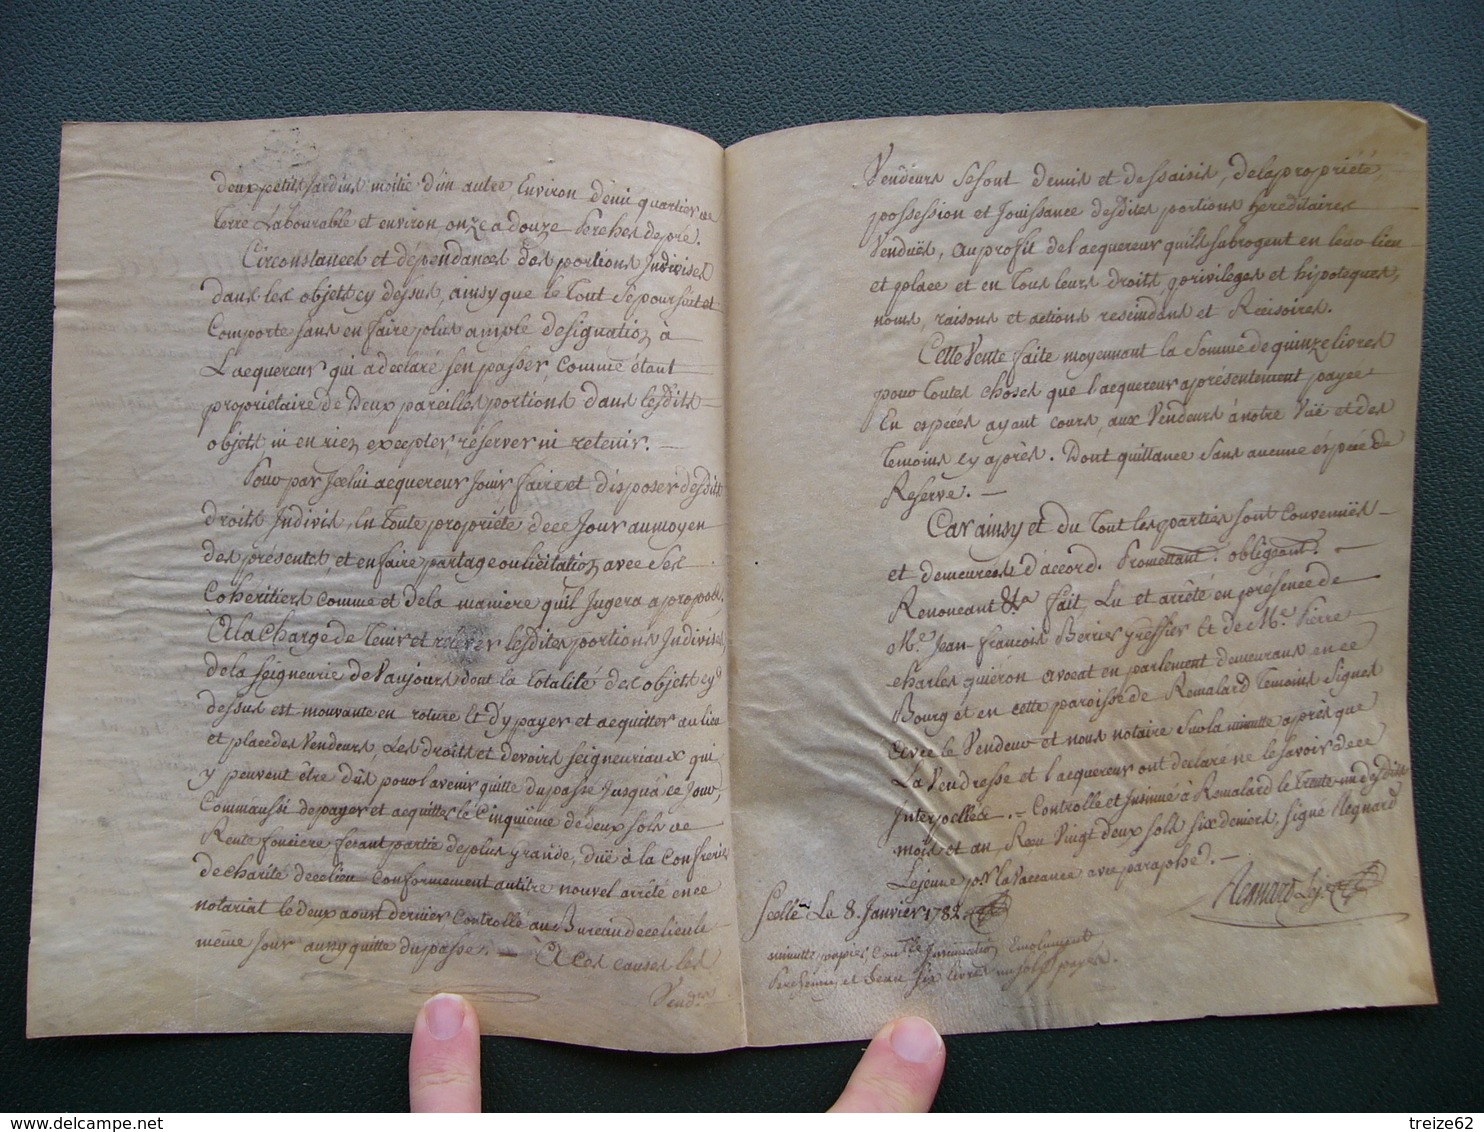 deux petits jardins moitié d'un autre, Environ demi quartier de
terre Labourable et environ onze a douze Perches de pré.
Circonstances et dépendances des portions Indivises
dans les objets cy dessus, ainsy que le tout se poursuit et
Comporte sans en faire plus ample designation à
L'acquereur qui a declaré s'en passer, comme étant
proprietaire de deux pareilles portions dans lesdits
objets, ni en rien excepter, réserver ni retenir. —
Pour par Jcelui acquereur Jouir faire et disposer desdits
droits Indivis, En toute propriété de ce Jour au moyen
des présentes, et en faire partage ou licitation avec ses
Cohéritiers comme et de la maniere qu'il Jugera apropos,
A la Charge de tenir et relever lesdites portions Indivises
de la seigneurie de Vaujours dont la totalité des objets cy
dessus est mouvante en roture Et d'y payer et acquitter au lieu
et place des Vendeurs, Les droits et devoirs seigneuriaux qui
y peuvent être dûs pour l'avenir quitte du passé Jusqu'à ce Jour,
Comme aussi de payer et acquitter le Cinquiéme de deux sols de
Rente fonciere fesant partie de plus grande, düe à la Confrerie
de charité de ce lieu conformement au titre nouvel arrêté en ce
notariat le deux aoust dernier Controllé au Bureau de ce lieu le
même Jour aussy quitte du passé. — A Ces causes les
Vendeurs
Vendeurs se sont demis et dessaisis, de la propriété,
possession et Jouissance desdites portions hereditaires
Venduës, au profit de l'acquereur qu'ils subrogent en leur lieu
et place et en tous leurs droits, privileges et hipoteques,
noms, raisons et actions rescindans et Rescisoires.
Cette Vente faite moyennant la Somme de quinze livres
pour toutes choses que l'acquereur a présentement payée
En especes ayant cours, aux Vendeurs à notre Vüe et des
temoins cy après. Dont quittance sans aucune espece de
Reserve. —
Car ainsy et du tout les parties sont convenuës —
et demeurées d'accord. Promettant. obligeant. —
Renonceant &a fait, Lu et arrêté en présence de
Me. Jean-françois Berrier greffier Et de Me. Pierre
charles quiéron avocat en parlement demeurans en ce
Bourg et en cette paroisse de Remalard temoins signés
avec le Vendeur et nous notaire sur la minutte après que
La Vendresse et l'acquereur ont declaré ne le savoir de ce
Interpellés. — Controllé et Insinué à Remalard le trente-un desdits
mois et an, Reçu Vingt deux sols six deniers, signé Regnard
Lejeune pr. la Vaccance avec paraphe. —
Regnard Lej.
Scellé Le 8. Janvier 178
minutte papier, Conlle Insinuation Emolument
Parchemin et sceau six livres sols payés.
treize62